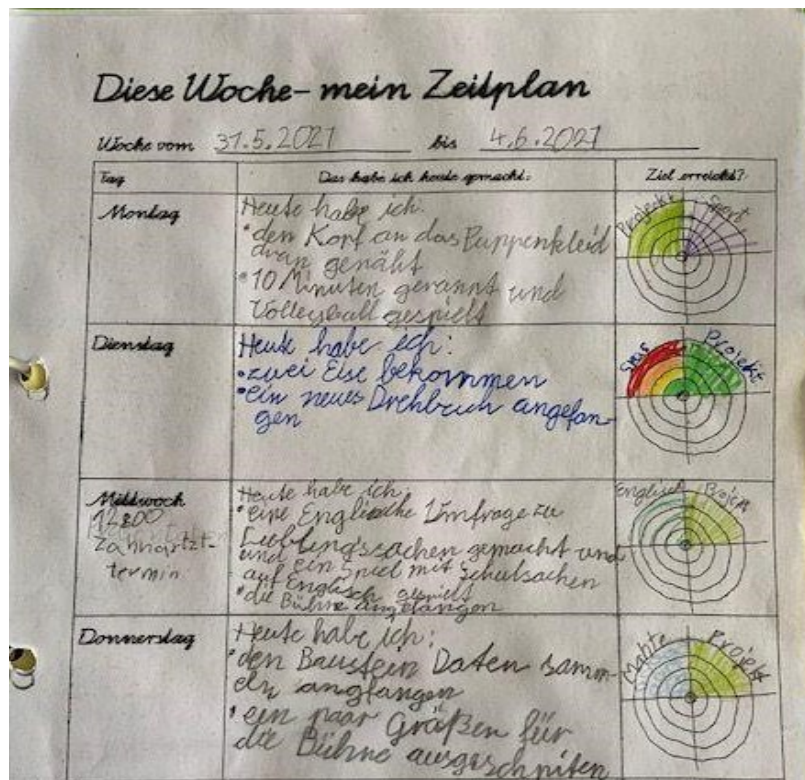 Diese Woche - mein Zeitplan
Woche vom 31.5.2021 bis 4.6.2021
Tag
Das habe ich heute gemacht:
Ziel erreicht?
Montag
Heute habe ich:
• den Kopf an das Puppenkleid
dran genäht
• 10 Minuten gerannt und
Volleyball gespielt
Projekt Sport
Dienstag
Heute habe ich:
• zwei Eise bekommen
• ein neues Drehbuch angefan-
gen
Projekt
Mittwoch
1200
Zahnartzt-
termin
Heute habe ich:
• eine Englische Umfrage zu
Lieblingssachen gemacht und
und ein Spiel mit Schulsachen
auf Englisch gespielt
• die Bühne angefangen
Englisch Projekt
Donnerstag
Heute habe ich:
• den Baustein Daten samm-
eln angfangen
• ein paar Größen für
die Bühne ausgeschniten
Mahte Projekt